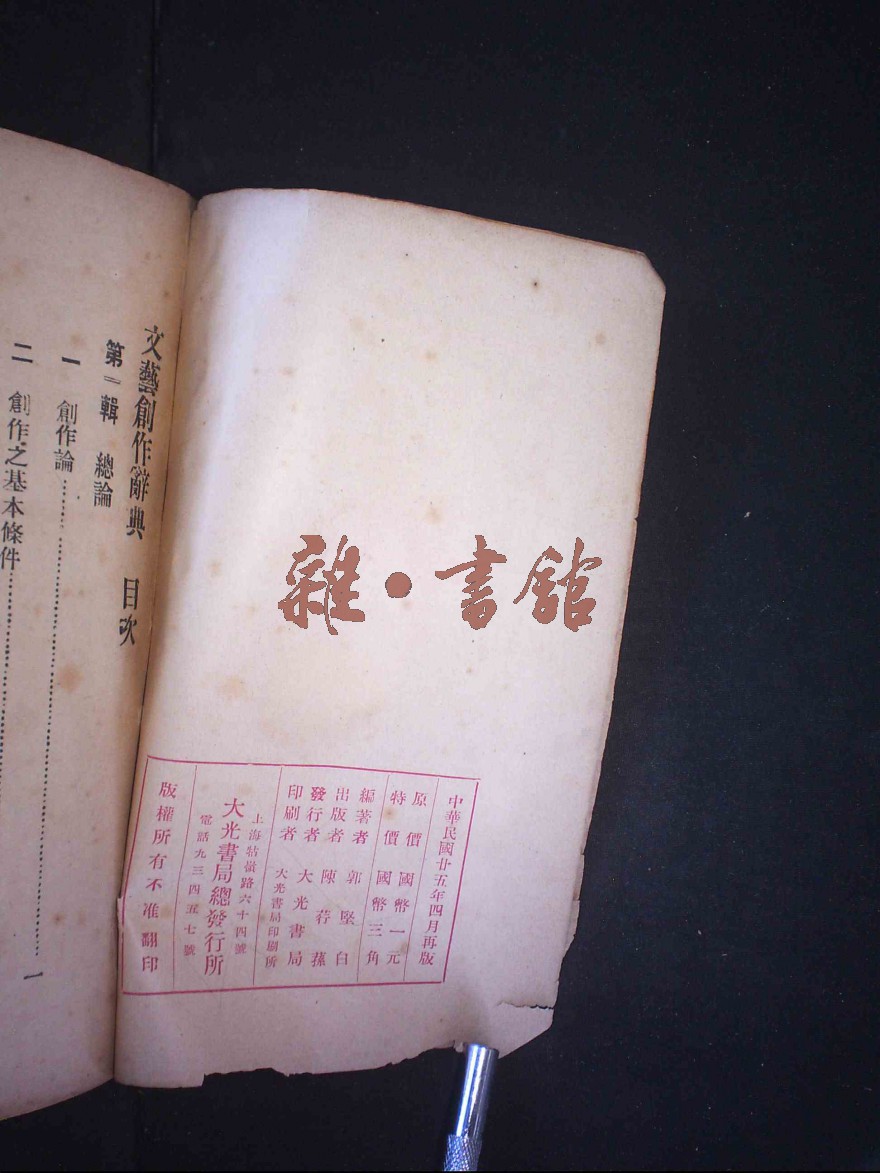 雜·書館
中華民國廿五年四月再版
原價國幣一元
特價國幣三角
編著者 郭堅白
出版者 陳荇蓀
發行者 大光書局
印刷者 大光書局印刷所
上海牯嶺路六十四號
大光書局總發行所
電話九三四五七號
版權所有不准翻印
文藝創作辭典 目次
第一輯 總論
一 創作論……一
二 創作之基本條件……